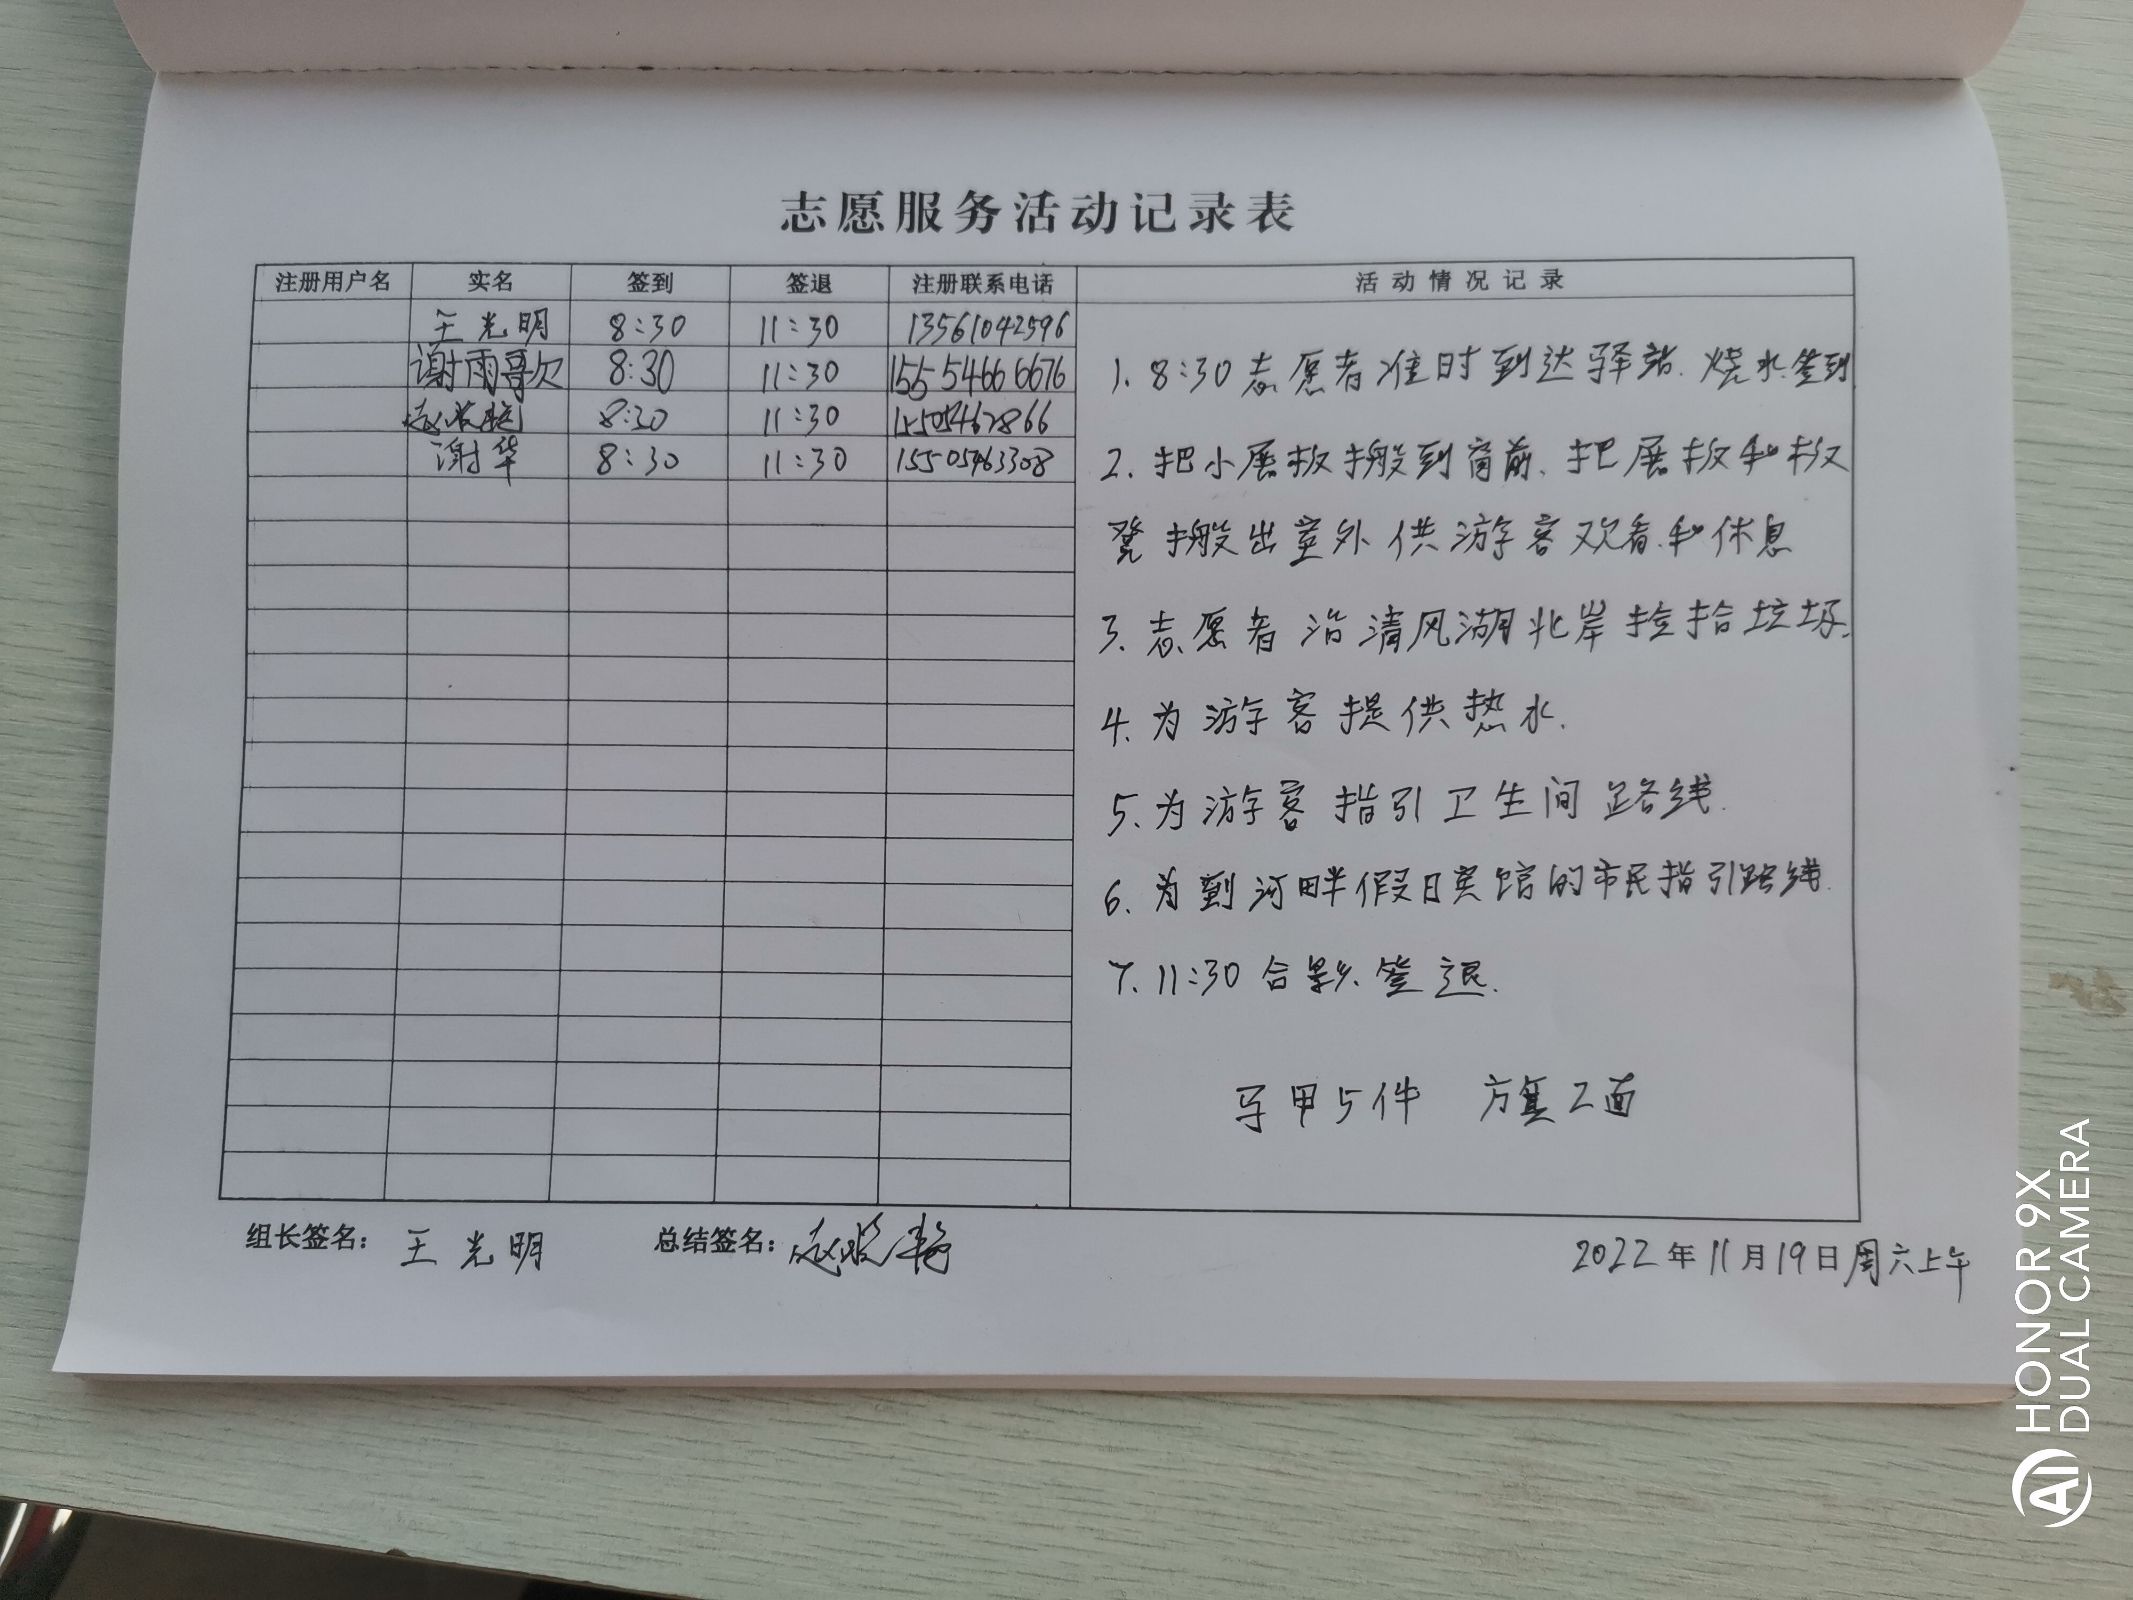 志愿服务活动记录表
注册用户名 实名 签到 签退 注册联系电话 活动情况记录
王光明 8:30 11:30 13561042596
谢雨歌 8:30 11:30 155 5466 6676
赵 8:30 11:30 15505462866
谢华 8:30 11:30 15505463308
1. 8:30志愿者准时到达驿站.烧水.签到
2. 把小展板搬到窗前.把展板和板
凳搬出室外供游客观看和休息
3. 志愿者沿清风湖北岸捡拾垃圾.
4. 为游客提供热水.
5. 为游客指引卫生间路线.
6. 为到河畔假日宾馆的市民指引路线.
7. 11:30合影.签退.
马甲5件 方旗2面
组长签名：王光明 总结签名：赵艳
2022年11月19日周六上午
HONOR 9X
DUAL CAMERA
AI